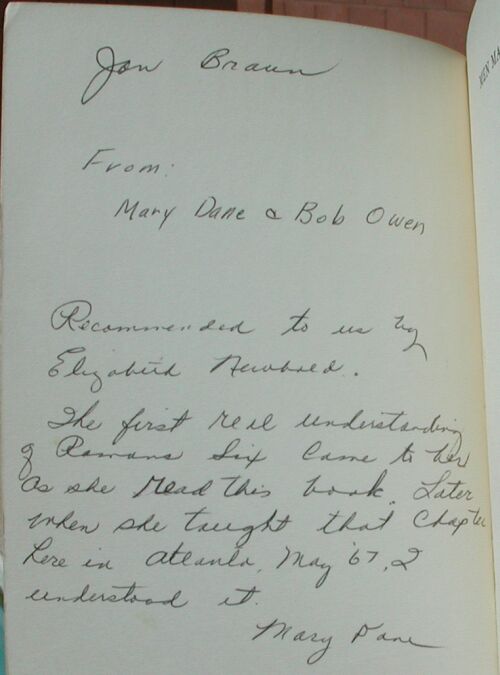 Jon Braun
From:
Mary Dane & Bob Owen
Recommended to us by
Elizabeth Newbold.
The first real understanding
of Romans Six came to her
as she read this book. Later
when she taught that Chapter
here in Atlanta, May '67, I
understood it.
Mary Dane
MEN MA